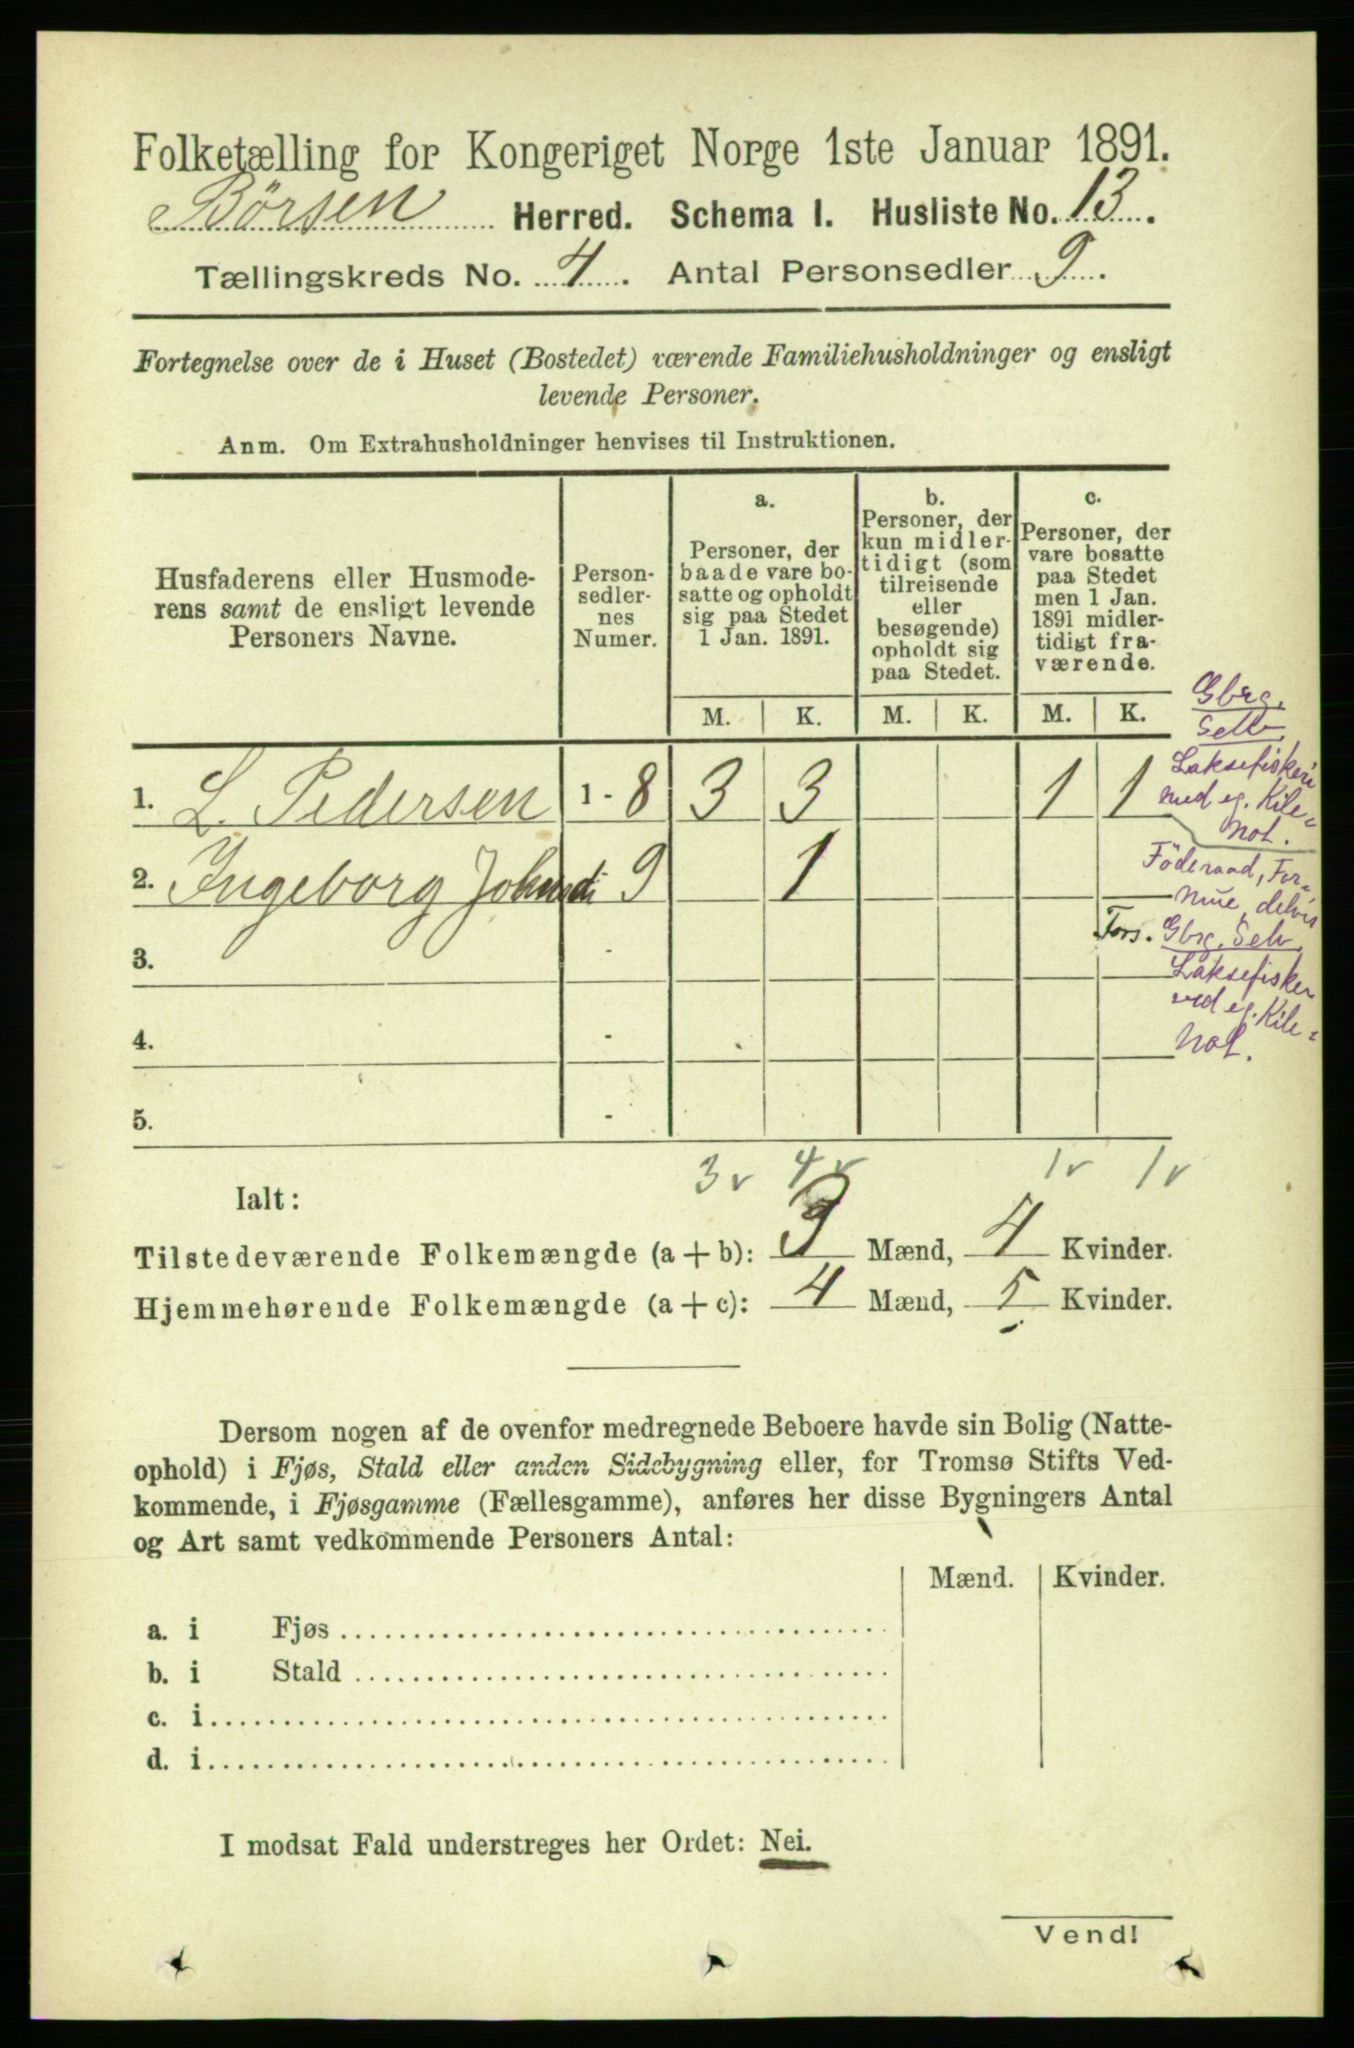 Folketælling for Kongeriget Norge 1ste Januar 1891.
Børsen Herred. Schema I. Husliste No. 13.
Tællingskreds No. 4. Antal Personsedler 9.
Fortegnelse over de i Huset (Bostedet) værende Familiehusholdninger og ensligt
levende Personer.
Anm. Om Extrahusholdninger henvises til Instruktionen.
Husfaderens eller Husmode-
rens samt de ensligt levende
Personers Navne.
Person-
sedler-
nes
Numer.
a.
Personer, der
baade vare bo-
satte og opholdt
sig paa Stedet
1 Jan. 1891.
b.
Personer, der
kun midler-
tidigt (som
tilreisende
eller
besøgende)
opholdt sig
paa Stedet.
c.
Personer, der
vare bosatte
paa Stedet
men 1 Jan.
1891 midler-
tidigt fra-
værende.
M. K. M. K. M. K.
Gbrg.
Selv.
Laksefiskeri
med eg. Kile-
not.
1. L. Pedersen 1 - 8 3 3 1 1
Föderaad, For-
mue, delvis
2. Ingeborg 9 1
Fors. Gbrg. Selv.
Laksefisker
ved eg. Kile-
Not.
3. -
4. -
5. -
3 v 4 v 1 v 1 v
Ialt:
Tilstedeværende Folkemængde (a + b): 3 Mænd, 4 Kvinder.
Hjemmehørende Folkemængde (a + c): 4 Mænd, 5 Kvinder.
Dersom nogen af de ovenfor medregnede Beboere havde sin Bolig (Natte-
ophold) i Fjøs, Stald eller anden Sidebygning eller, for Tromsø Stifts Ved-
kommende, i Fjøsgamme (Fællesgamme), anføres her disse Bygningers Antal
og Art samt vedkommende Personers Antal:
Mænd. Kvinder.
a. i Fjøs
b. i Stald
c. i
d. i
I modsat Fald understreges her Ordet: Nei.
Vend!